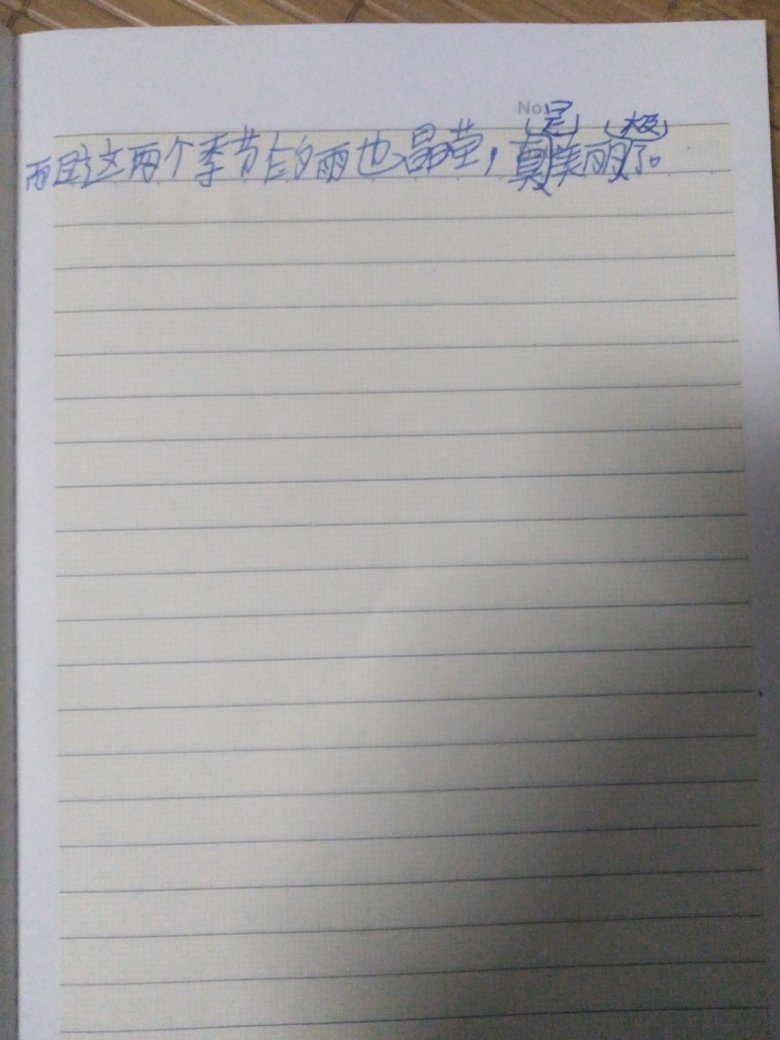 No
而且这两个季节的雨也晶莹，真是美丽极了。